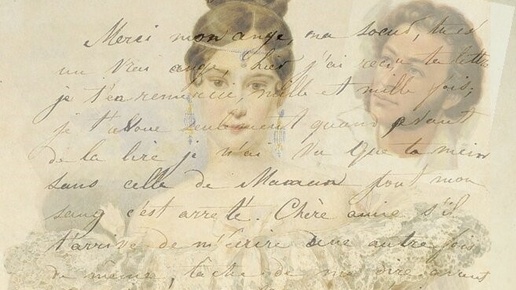 Merci mon ange, ma sœur, tu es
un vrai ange, hier j'ai reçu ta lettre
je t'en remercie mille et mille fois;
je t'avoue seulement quand avant
de la lire je n'ai vu que ta main
sans celle de Maman tout mon
sang s'est arrêté. Chère amie s'il
t'arrive de m'écrire une autre fois
de même, tâche de me dire avant